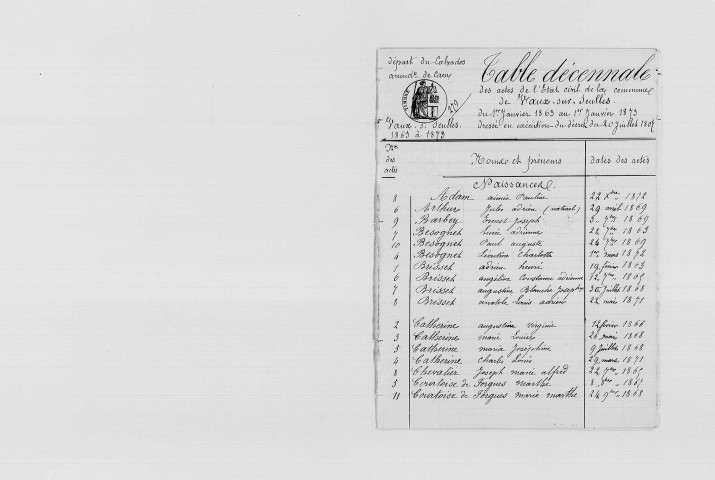 départ du Calvados
arrondt de Caen
TIMBRE
229
Vaux-s-Seulles.
1863 à 1873
Table décennale
des actes de l'Etat civil de la commune
de Vaux-sur-Seulles.
du 1er Janvier 1863 au 1er Janvier 1873
Dressé en exécution du décret du 20 Juillet 1807
Nos des actes Noms et prénoms dates des actes
Naissances.
8 Adam aimée Pauline 22 Xbre 1872
6 Arthur Jules adrien (naturel) 29 avril 1869
9 Barbey Ernest Joseph 3 7bre 1869
7 Besognet Lucie adrienne 22 7bre 1863
10 Besognet Paul auguste 24 7bre 1869
4 Besognet Léontine Charlotte 1er mars 1872
1 Brisset adrien henri 19 février 1863
6 Brisset angéline Constance adrienne 12 7bre 1865
7 Brisset augustine Blanche Josephine 30 Juillet 1868
8 Brisset anatole Louis adrien 22 mai 1871
2 Catherine augustine virginie 12 février 1866
3 Catherine marie Louise 26 mai 1868
5 Catherine maria Joséphine 9 Juillet 1868
4 Catherine Charles Louis 29 mars 1871
8 Chevalier Joseph marie alfred 22 7bre 1865
5 Courtoise de Forgues marthe 8 8bre 1865
11 Courtoise de Forgues marie marthe 24 9bre 1868